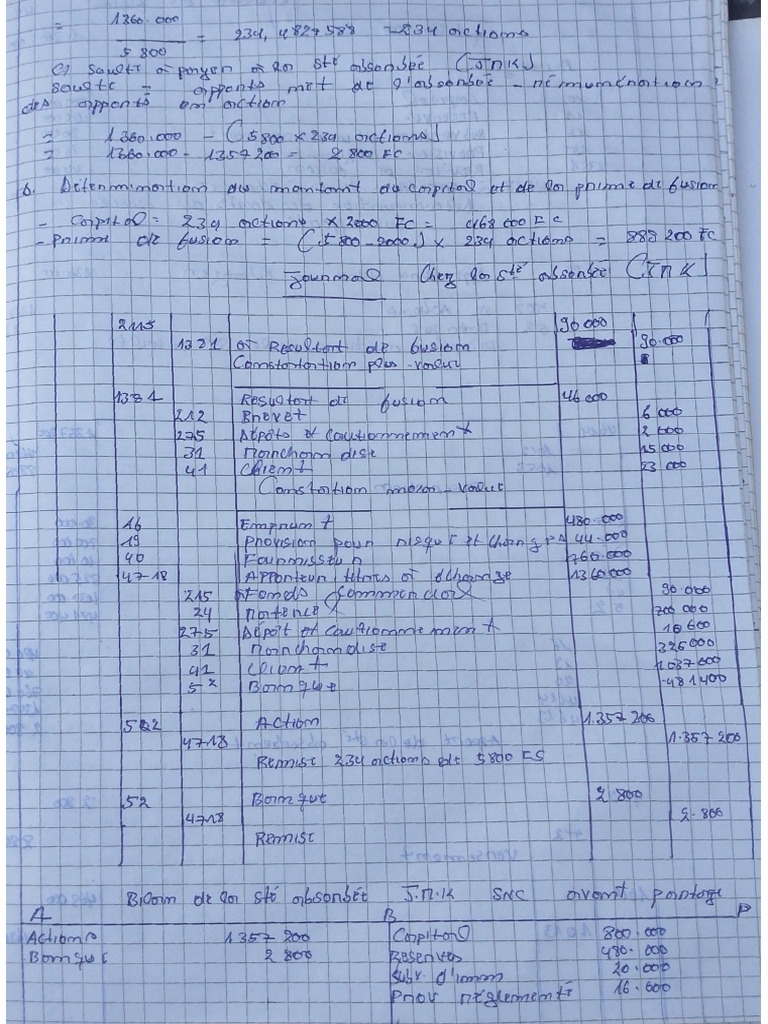 = 1360.000 / 5 800 = 234,4827588 ~ 234 actions
c) Soulte à payer à la sté absorbée (J.M.K)
Soulte = apports net de l'absorbée - rémunération
des apports en action
= 1360.000 - (5800 x 234 actions)
= 1360.000 - 1357 200 = 2 800 FC
Détermination du montant du capital et de la prime de fusion
- Capital = 234 actions x 2000 FC = 468 000 FC
- Prime de fusion = (5 800 - 2000) x 234 actions = 889 200 FC
Journal Chez la sté absorbée (J.M.K)
215 90 000
1381 à Résultat de fusion 90.000
Constatation plus-value
1381 Résultat de fusion 46 000
212 Brevet 6 000
275 Dépôts et cautionnement 2 000
31 Marchandise 15 000
41 Client 23 000
Constation moin-value
16 Emprunt 480.000
19 Provision pour risque et charges 44.000
40 Fournisseur 760.000
47-18 Apporteur titres à échange 1360000
215 Fonds Commercial 90.000
24 Matériel 700 000
275 Dépôt et Cautionnement 16 600
31 Marchandise 326000
41 Client 1037 600
52 Banque 481 400
502 Action 1.357 200
4718 1.357 200
Remise 234 actions de 5800 FC
52 Banque 2 800
4718 2.800
Remise
Bilan de la sté absorbée J.M.K SNC avant partage
A P
Actions 1 357 200 Capital 800.000
Banque 2 800 Réserves 480.000
Subv. d'imm 20.000
Prov réglementé 16.600